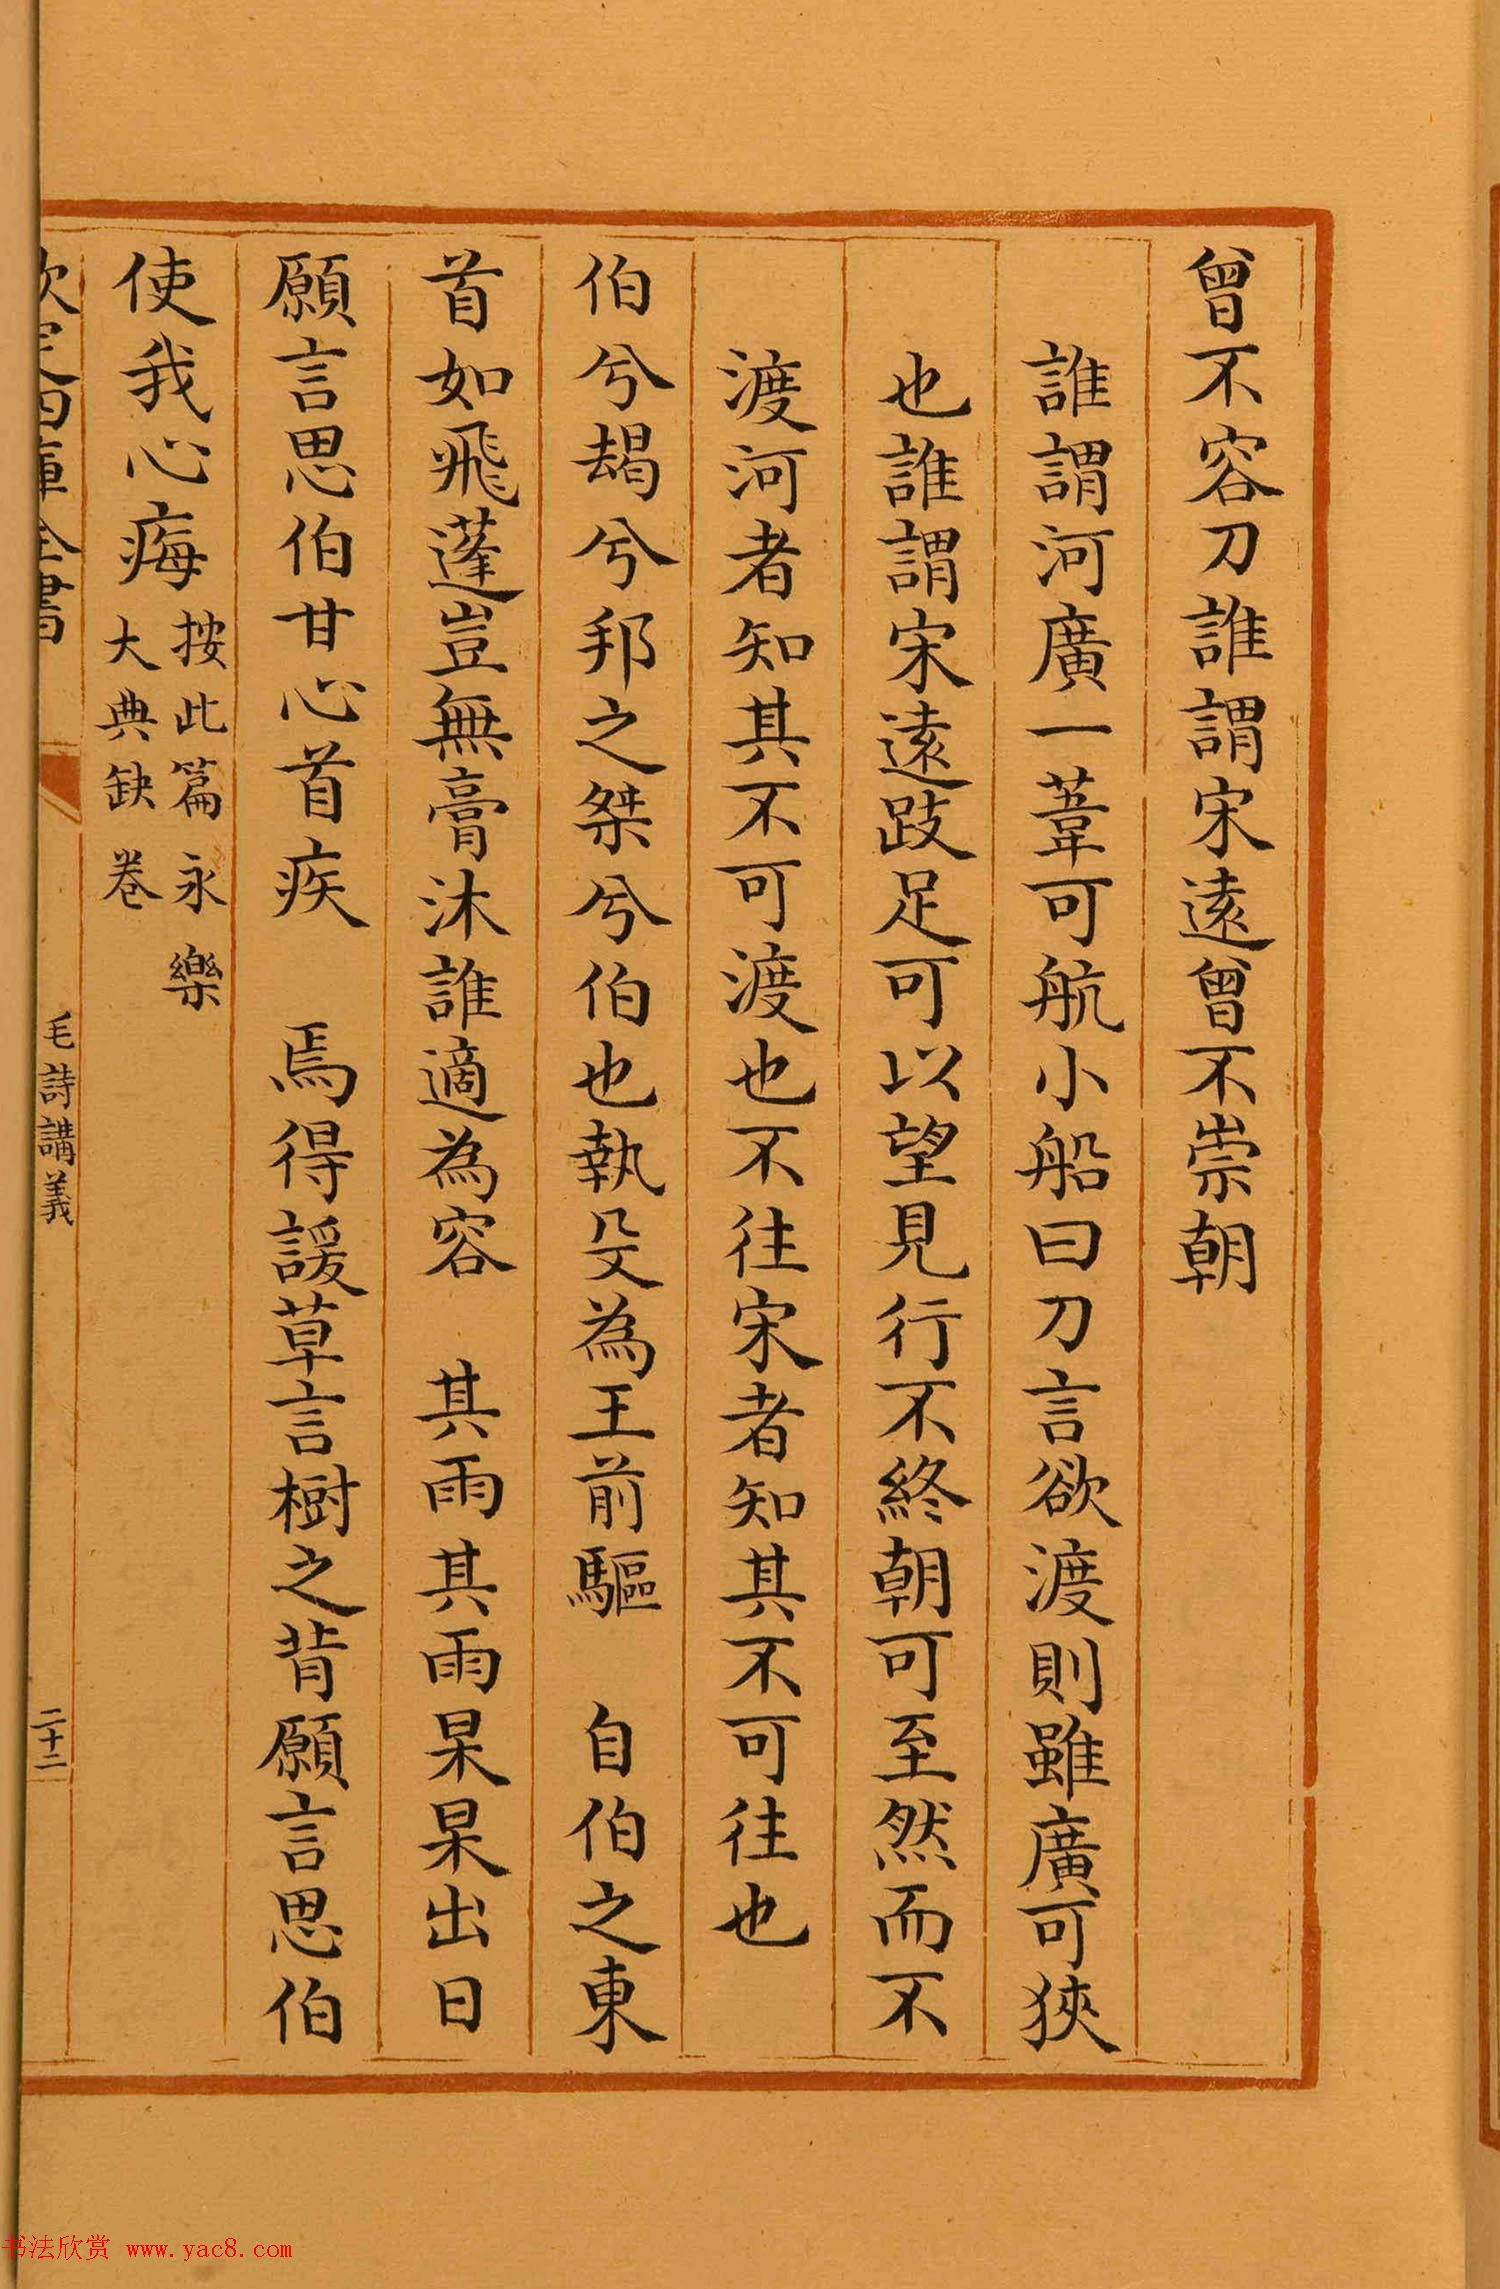 曾不容刀誰謂宋遠曾不崇朝
誰謂河廣一葦可航小船曰刀言欲渡則雖廣可狹
也誰謂宋遠跂足可以望見行不終朝可至然而不
渡河者知其不可渡也不往宋者知其不可往也
伯兮朅兮邦之桀兮伯也執殳為王前驅　自伯之東
首如飛蓬豈無膏沐誰適為容　其雨其雨杲杲出日
願言思伯甘心首疾　焉得諼草言樹之背願言思伯
使我心痗
按此篇永樂
大典缺卷
欽定四庫全書
毛詩講義
二十二
书法欣赏 www.yac8.com